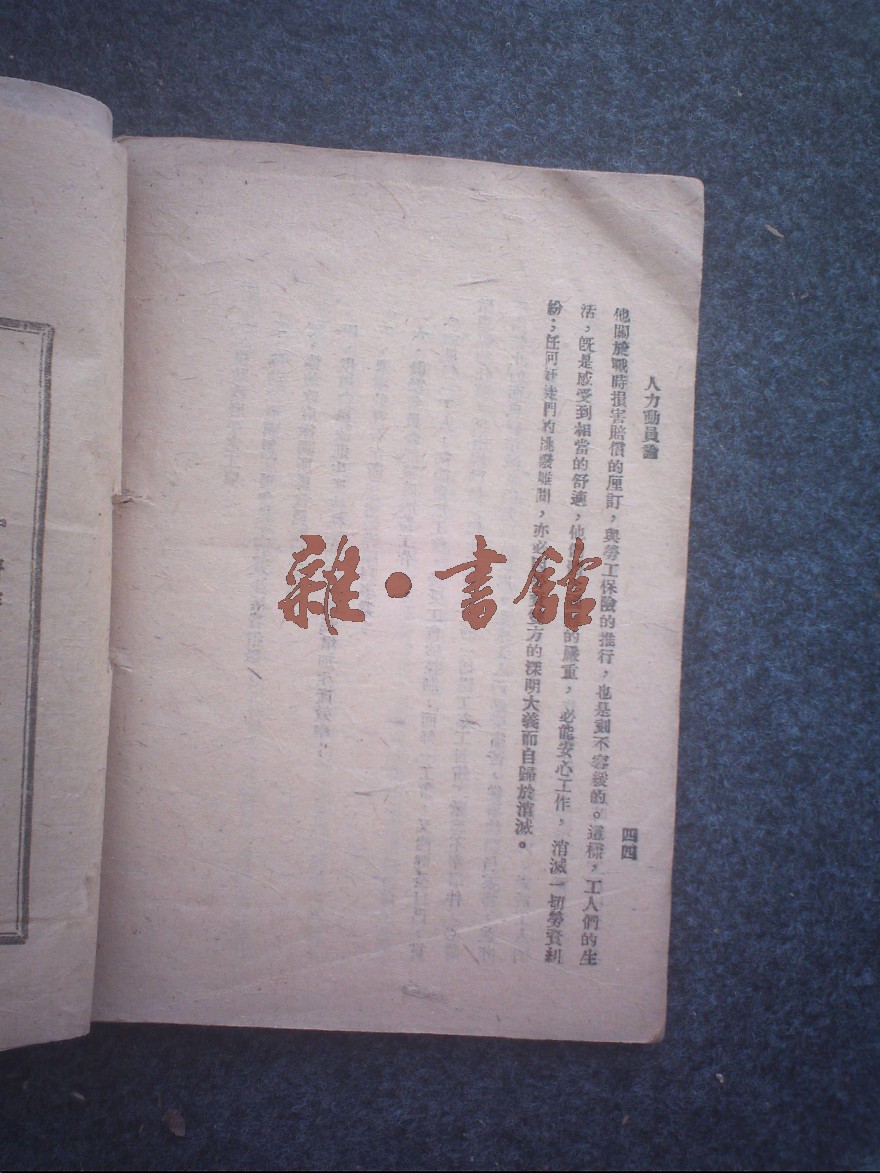 人力動員論
四四
他關於戰時損害賠償的厘訂，與勞工保險的推行，也是刻不容緩的。這樣，工人們的生
活，既是感受到相當的舒適，他的嚴重，必能安心工作，消滅一切勞資糾
紛；任何奸徒們的挑撥離間，亦必方的深明大義而自歸於消滅。
雜·書館